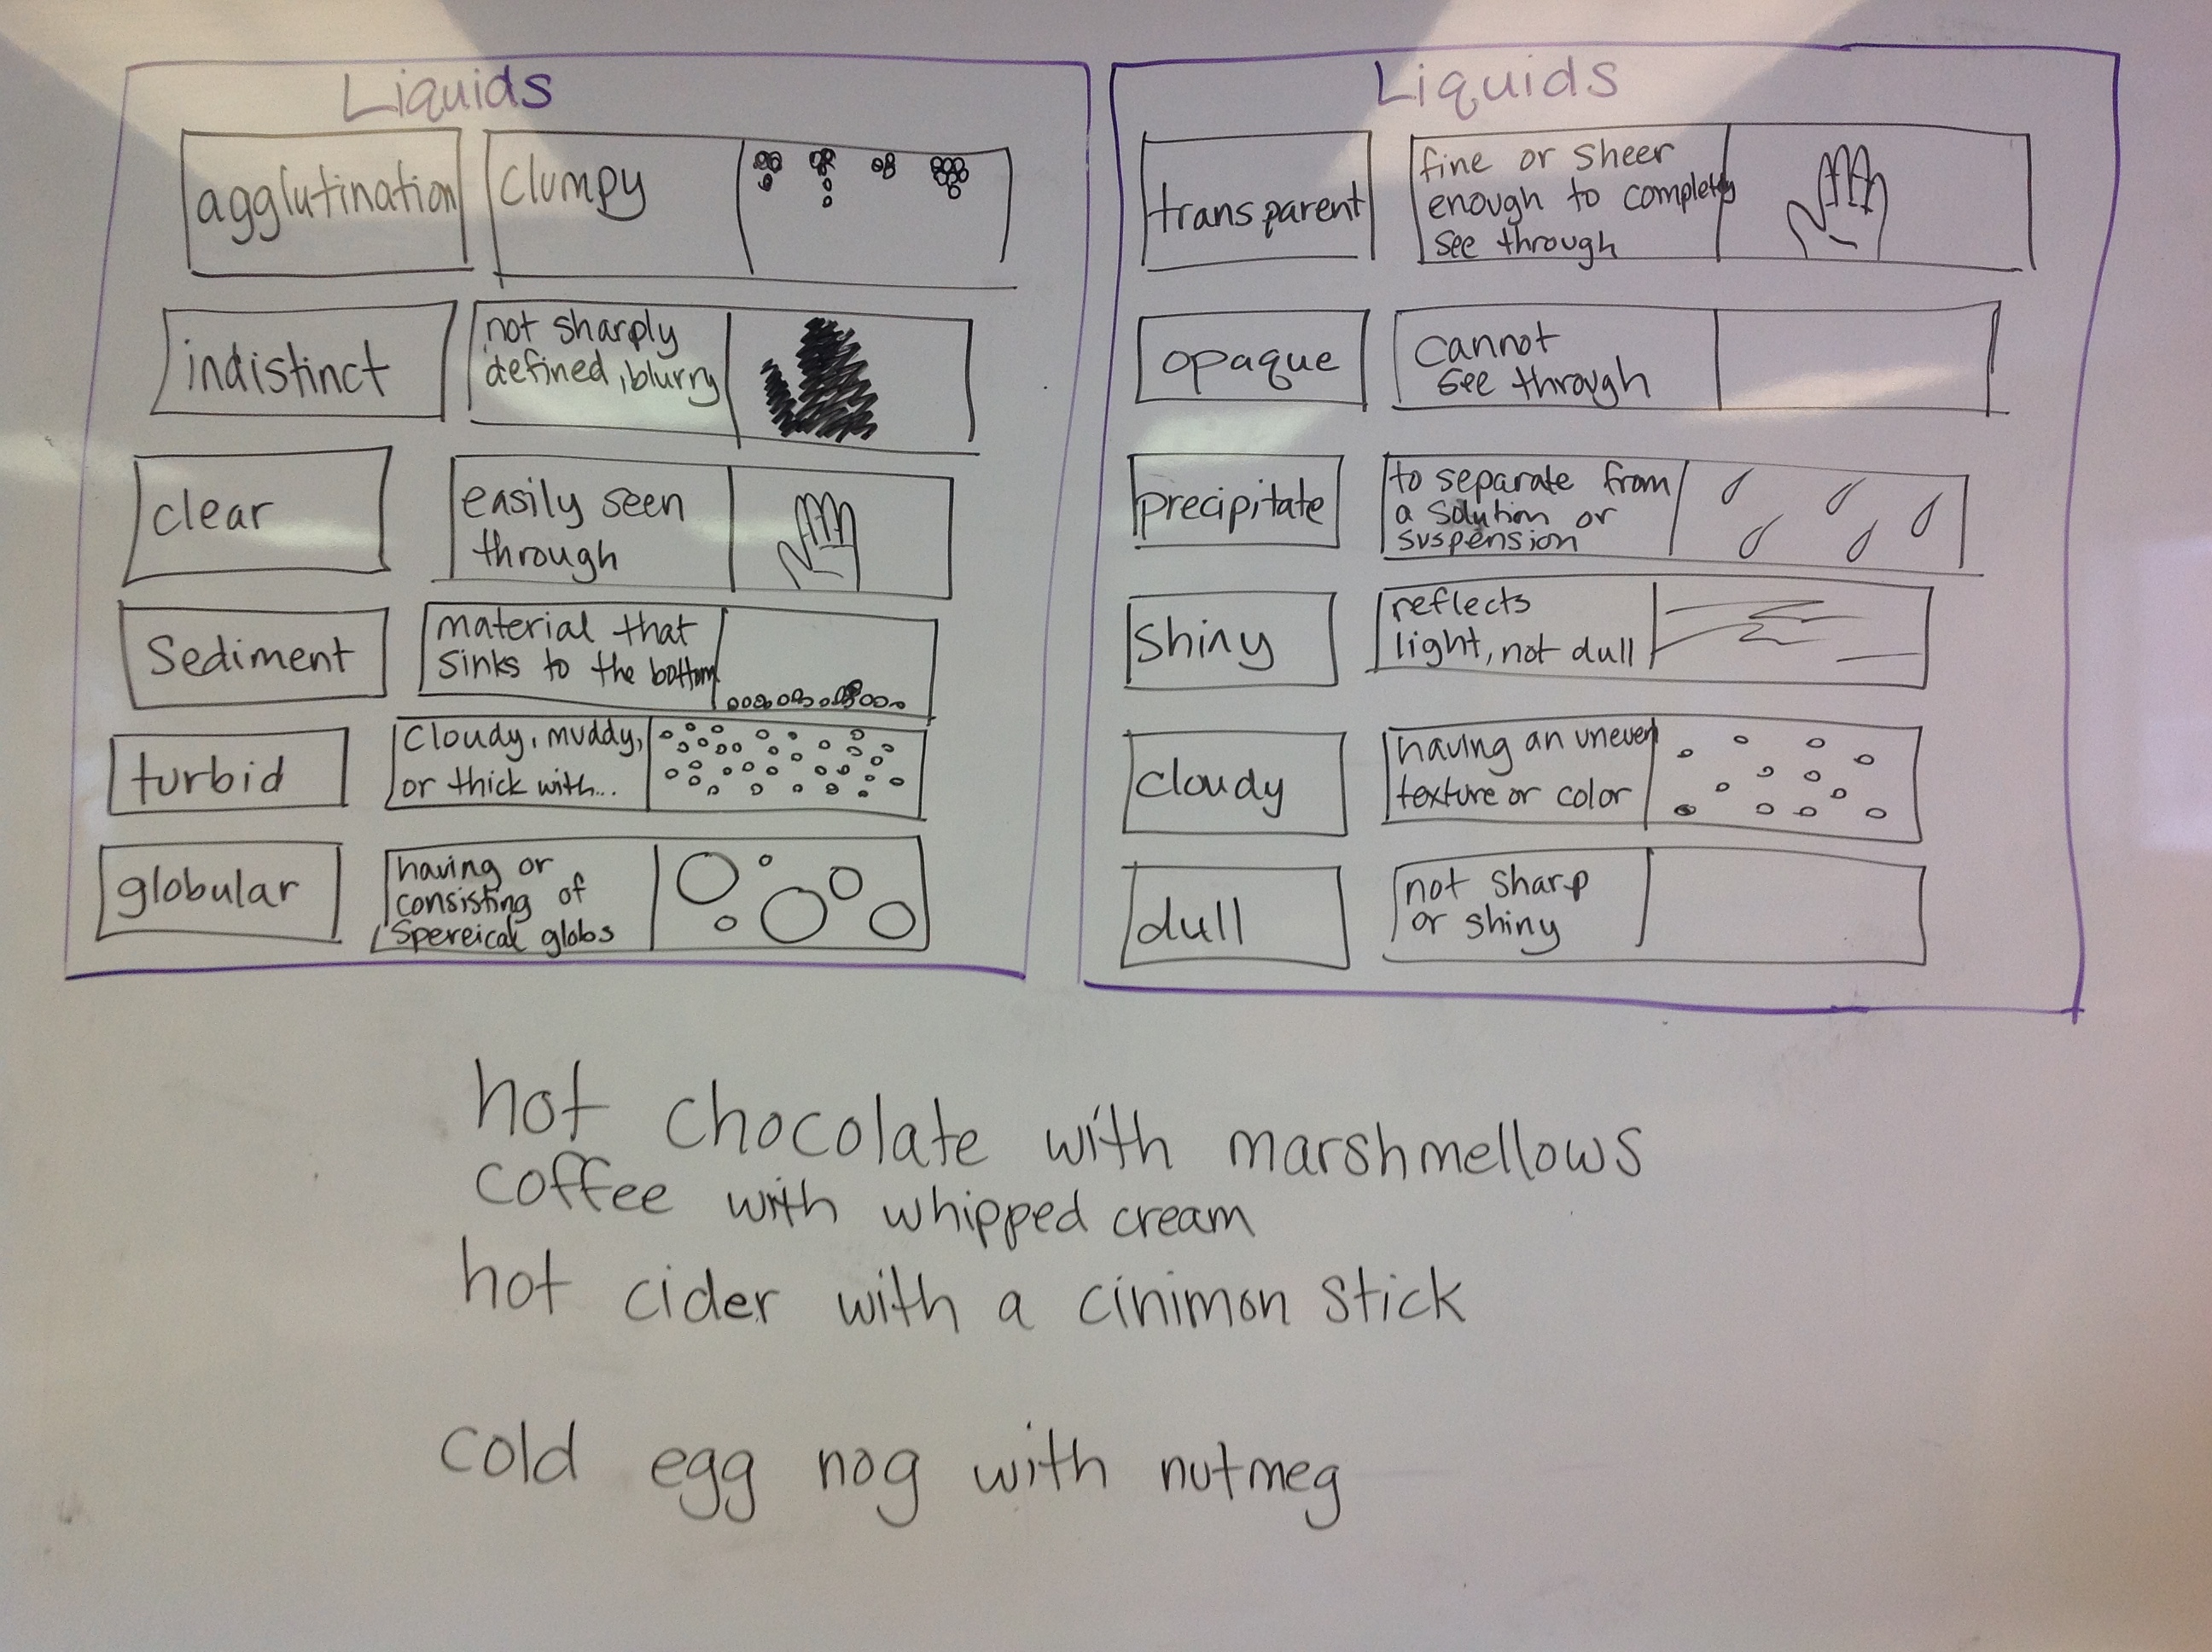 Liquids
agglutination
Clumpy
indistinct
not sharply
defined, blurry
clear
easily seen
through
Sediment
material that
sinks to the bottom
turbid
Cloudy, muddy,
or thick with...
globular
having or
consisting of
Spereical globs
Liquids
transparent
fine or sheer
enough to completely
see through
opaque
cannot
see through
precipitate
to separate from
a solution or
suspension
Shiny
reflects
light, not dull
cloudy
having an uneven
texture or color
dull
not sharp
or shiny
hot chocolate with marshmellows
coffee with whipped cream
hot cider with a cinimon stick
cold egg nog with nutmeg